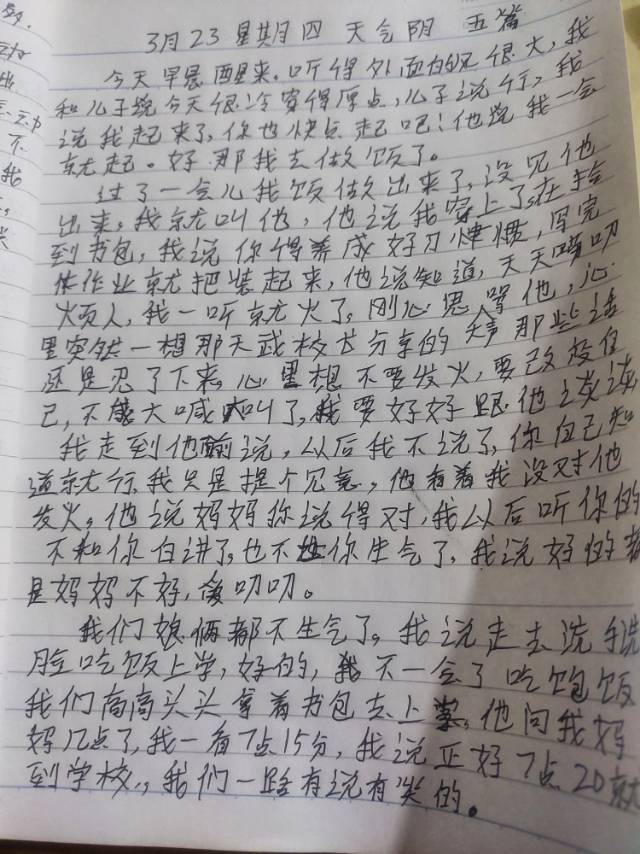 3月23星期四 天气阴 五篇
今天早晨醒来.听得外面的风很大,我
和儿子说今天很冷穿得厚点,儿子说行,我
说我起来了,你也快点起吧!他说我一会
就起。好那我去做饭了。
过了一会儿我饭做出来了,没见他
出来,我就叫他,他说我穿上了,在拾
到书包,我说你得养成好习惯,写完
作业就把装起来,他说知道,天天唠叨
烦人,我一听就火了,刚心思骂他,心
里突然一想那天武校长分享的 那些话
还是忍了下来,心里想不要发火,要改变自
己,不能大喊大叫了,我要好好跟他谈谈
我走到他前说,以后我不说了,你自己知
道就行,我只是提个见意,他看着我没对他
发火,他说妈妈你说得对,我以后听你的
不和你白讲了,也不 你生气了,我说好的都
是妈妈不好,叨叨。
我们娘俩都不生气了,我说走去洗手洗
脸吃饭上学,好的,我不一会了吃饱饭
我们高高头头拿着书包去上学,他问我妈
妈几点了,我一看7点15分,我说正好7点20就
到学校,我们一路有说有笑的。